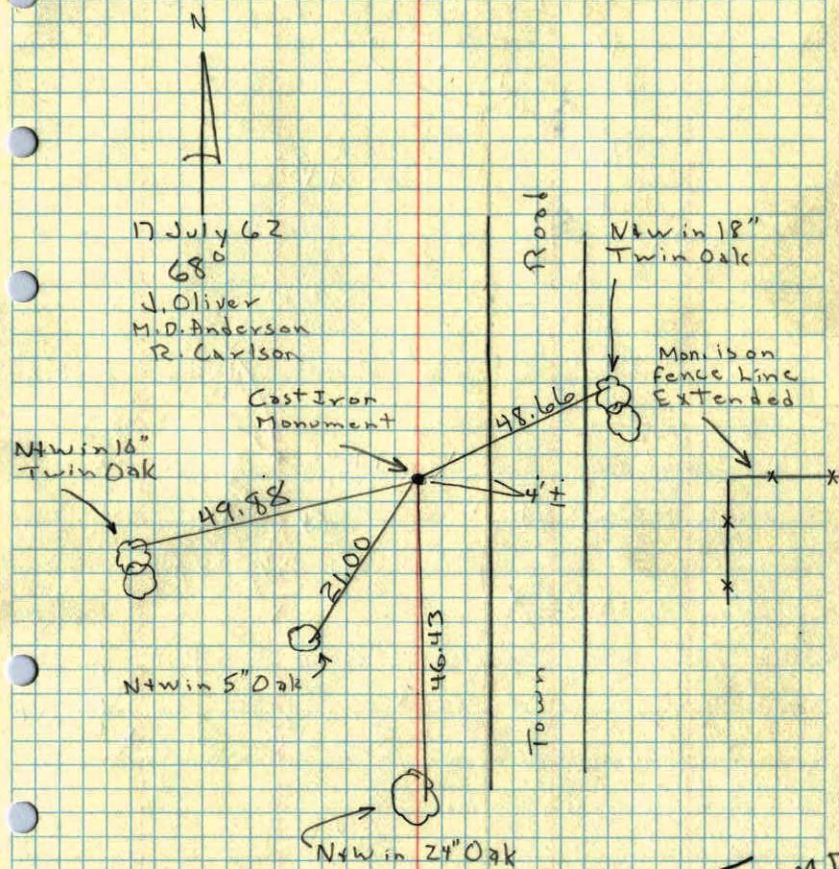 N
17 July 62
68°
J. Oliver
M.D. Anderson
R. Carlson
Town Road
N+W in 18"
Twin Oak
Mon. is on
fence Line
Extended
Cast Iron
Monument
48.66
N+W in 16"
Twin Oak
49.88
4' ±
21.00
46.43
N+W in 5" Oak
N+W in 24" Oak